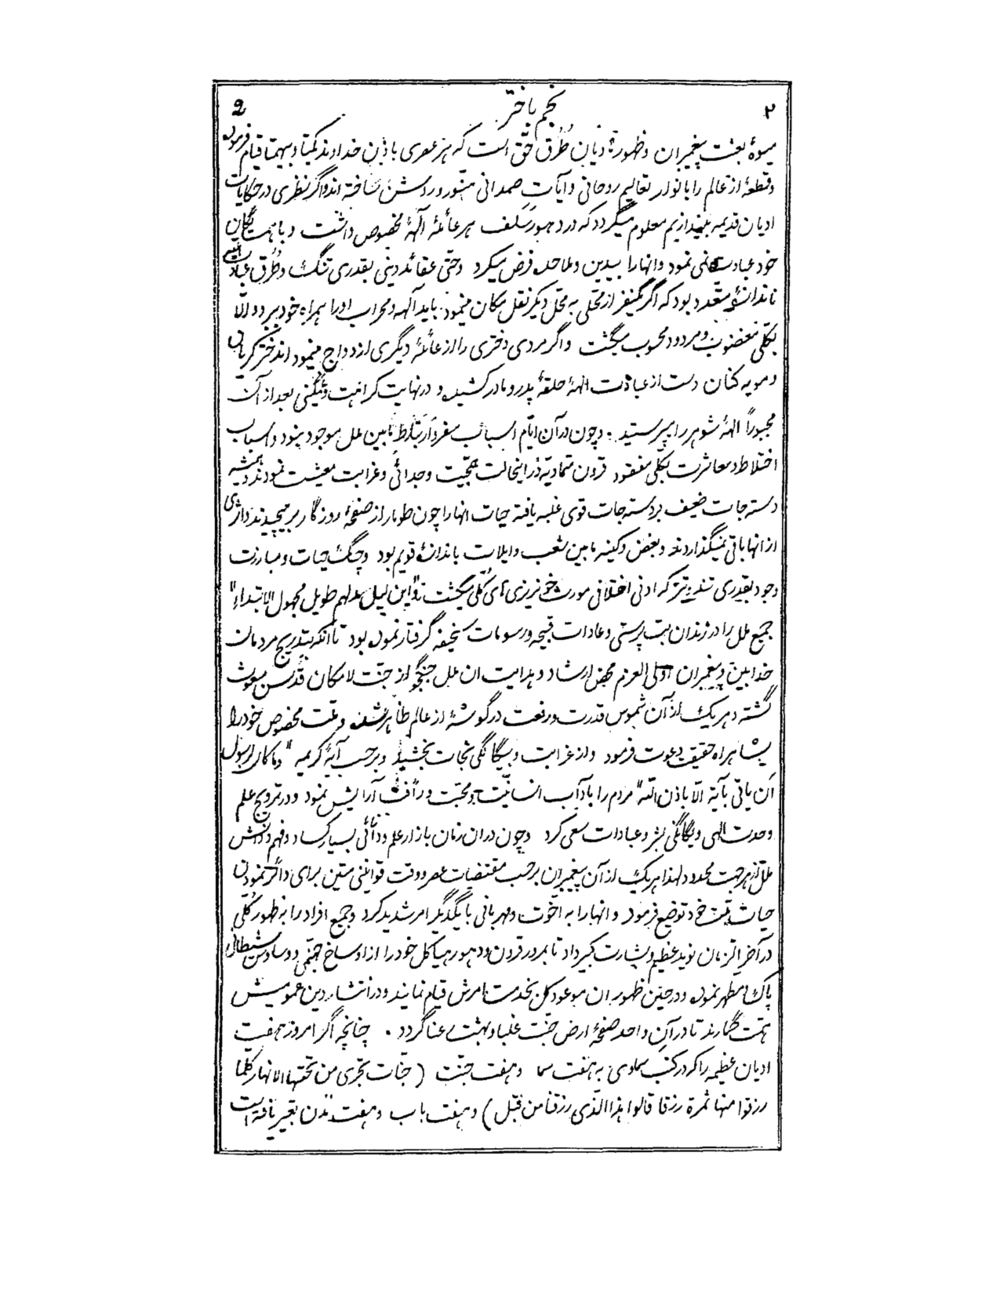 ۲ نجم باختر 2
میوهٔ بعثت پیغمبران و ظهور ادیان طُرُق حقّ است که هر عصری باذن خداوند یکتا و بیهمتا قیام فرموده
و قطعهٔ از عالم را بانوار تعالیم روحانی و آیات صمدانی منوّر و روشن ساخته اند و اگر نظری در حکایات
ادیان قدیمه بیندازیم معلوم میگردد که در دهور سلف هر عائلهٔ آلههٔ مخصوص داشت و با همسایگان
خود عبادت نمی نمود و انها را بیدین و ملاحده فرض میکرد و حتّی عقائد دینی بقدری تنگ و طُرُق عبادت
باندازهٔ متعدد بود که اگر یکنفر از محلی به محل دیگر نقل مکان مینمود باید آلهه و محراب اورا همراه خود ببرد و الّا
بکلّی مغضوب و مردود محسوب میگشت و اگر مردی دختری را از عائلهٔ دیگری ازدواج مینمود اندختر گریان
و مویه کنان دست از عبادت الههٔ حلقهٔ پدر و مادر کشیده و در نهایت کراهت و تنگی بعد از آن
مجبوراً الههٔ شوهر را میپرستید . و چون در آن ایّام اسباب سفر و ارتباط مابین ملل موجود نبود و اسباب
اختلاط و معاشرت بکلّی مفقود قرون متمادیه در اینحالت همجیّت و جدائی و غرابت معیشت نمودند و همیشه
دسته جات ضعیف بر دسته جات قوی غلبه یافته حیات انها را چون طومار از صفحهٔ روزگار برمیچیدند و اثری
از انها باقی نمیگذاردند و بغض و کینه مابین شعب و ایلات باندازهٔ قویم بود و جنگ حیات و مبارزت
وجود بقدری تند و تیز که ادنی اختلافی مورث خونریزی های کلّی میگشت و این لیل مدلهم طویل مجهول الابتداء
جمیع ملل را در زندان بت پرستی و عادات قبیحه و رسومات سخیفه گرفتار نموده بود تا آنکه بتدریج مردمان
خدابین و پیغمبران اولی العزم محض ارشاد و هدایت ان ملل جنگجو از جنّت لامکان قدس مبعوث
گشته و هر یک از آن شموس قدرت و رفعت در گوشهٔ از عالم ظاهر شده و ملّت مخصوص خود را
بشاهراه حقیقت دعوت فرمود و از غرابت و بیگانگی نجات بخشید و برحسب آیهٔ کریمه "و ما کان لرسول
أن یاتی بآیة الّا باذن الله" مردم را بآداب انسانیّت و محبّت و رأفت آرایش نمود و در ترویج علم
وحدت الهی و یگانگی بشر و عبادات سعی کرد و چون در ان زمان بازار علم و دانائی بسیار کساد و فهم و دانش
ملل از هر جهت محدود لهذا هر یک از آن پیغمبران برحسب مقتضیات عصر و وقت قوانینی متین برای دائر نمودن
حیات ملّت خود توضیع فرمود و انها را به اخوّت و مهربانی با یکدیگر امر شدید کرد و جمیع افراد را به ظهور کلّی
در آخر الزمان نوید عظیم و بشارت کبیر داد تا بمرور قرون و دهور هیاکل خود را از اوساخ جهنمی و وساوس شیطانی
پاک و مطهر نموده و در حین ظهور ان موعود کل بخدمت امرش قیام نمایند و در انتشار دین عمومیش
همّت گمارند تا در آن واحد صفحهٔ ارض جنّت علیا و بهشت رعنا گردد . چنانچه اگر امروز هفت
ادیان عظیمه را که در کتب سماوی به هفت سما و هفت جنّت (جنّات تجری من تحتها الانهار کلما
رزقوا منها ثمرة رزقا قالوا هذا الذی رزقنا من قبل) و هفت باب و هفت مدن تعبیر یافته است